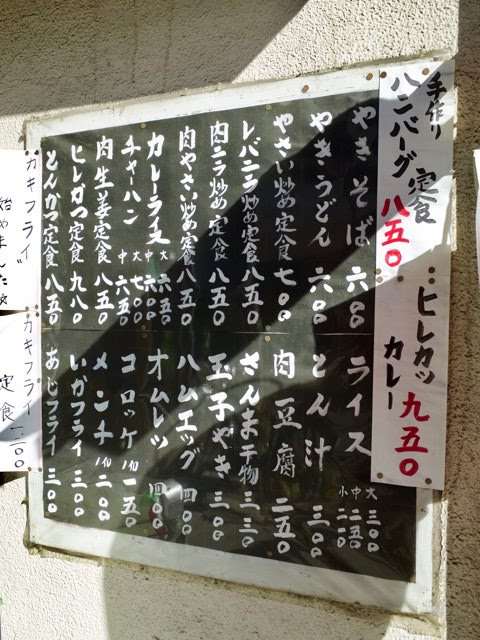 手作り
ハンバーグ定食 八五〇
ヒレカツ
カレー 九五〇
やきそば 六〇〇
やきうどん 六〇〇
やさい炒め定食 七〇〇
レバニラ炒め定食 八五〇
肉ニラ炒め定食 八五〇
肉やさい炒め定食 八五〇
カレーライス 大 六五〇 中 六〇〇
チャーハン 大 七〇〇 中 六五〇
肉生姜定食 八五〇
ヒレかつ定食 九八〇
とんかつ定食 八五〇
ライス 大 三〇〇 中 二五〇 小
とん汁 三〇〇
肉豆腐 二五〇
さんま干物 三三〇
玉子やき 三〇〇
ハムエッグ 四〇〇
オムレツ 四〇〇
コロッケ 1個 一五〇
メンチ 1個 二〇〇
いかフライ 三〇〇
あじフライ 三〇〇
カキフライ
始めました
カキフライ
定食